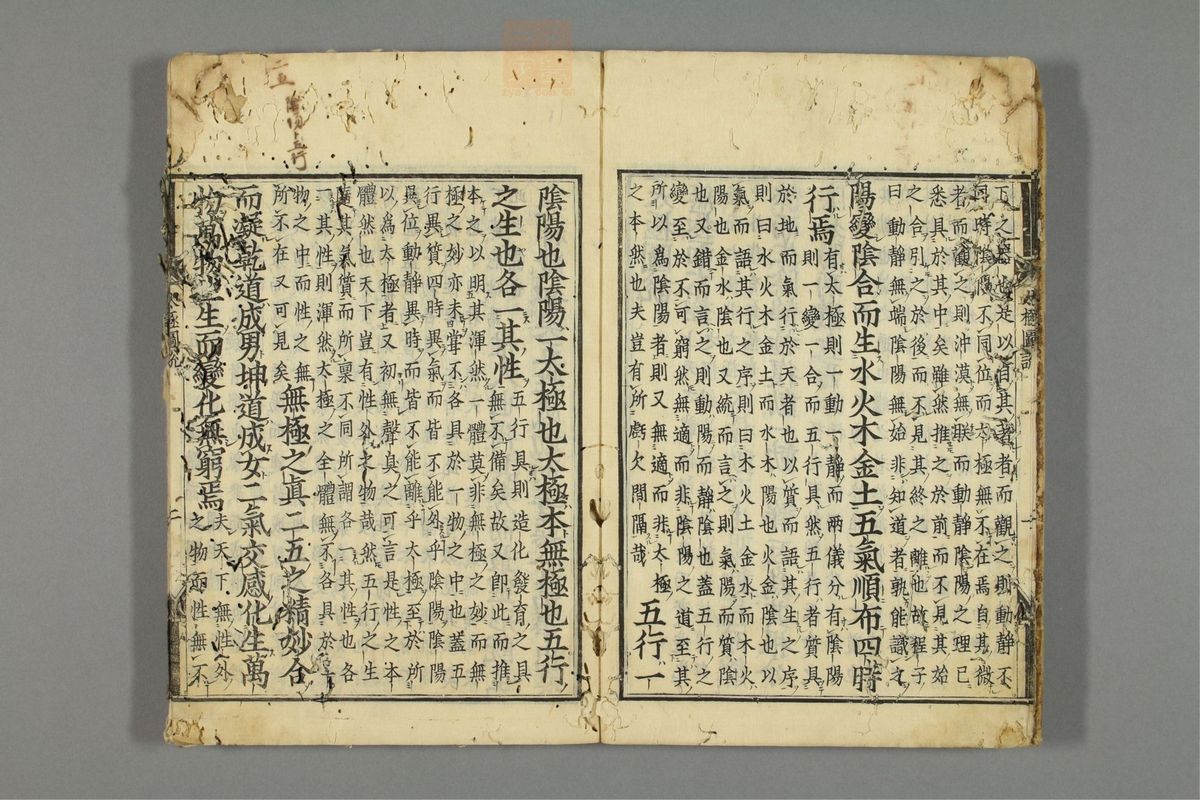 下之器也是以自其著者而觀之則動靜不
同時陰陽不同位而太極無不在焉自其微
者而觀之則沖漠無朕而動靜陰陽之理已
悉具於其中矣雖然推之於前而不見其始
之合引之於後而不見其終之離也故程子
曰動靜無端陰陽無始非知道者孰能識之
陽變陰合而生水火木金土五氣順布四時
行焉
有太極則一動一靜而兩儀分有陰陽
則一變一合而五行具然五行者質具
於地而氣行於天者也以質而語其生之序
則曰水火木金土而水木陽也火金陰也以
氣而語其行之序則曰木火土金水而木火
陽也金水陰也又統而言之則氣陽而質陰
也又錯而言之則動陽而靜陰也蓋五行之
變至於不可窮然無適而非陰陽之道至其
所以爲陰陽者則又無適而非太極
之本然也夫豈有所虧欠間隔哉
五行一
陰陽也陰陽一太極也太極本無極也五行
之生也各一其性
五行具則造化發育之具
無不備矣故又卽此而推
本之以明其渾然一體莫非無極之妙而無
極之妙亦未嘗不各具於一物之中也蓋五
行異質四時異氣而皆不能外乎陰陽陰陽
異位動靜異時而皆不能離乎太極至於所
以爲太極者又初無聲臭之可言是性之本
體然也天下豈有性外之物哉然五行之生
隨其氣質而所稟不同所謂各一其性也各
一其性則渾然太極之全體無不各具於一
物之中而性之無
所不在又可見矣
無極之眞二五之精妙合
而凝乾道成男坤道成女二氣交感化生萬
物萬物生生而變化無窮焉
夫天下無性外
之物而性無不
二五
陰陽五行
太極圖說